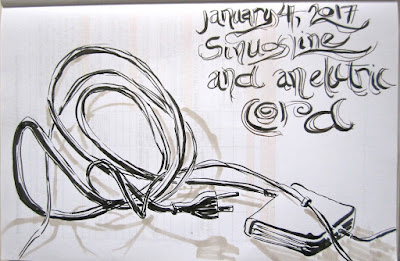 january 4, 2017
Sinuos line
and an electric
cord